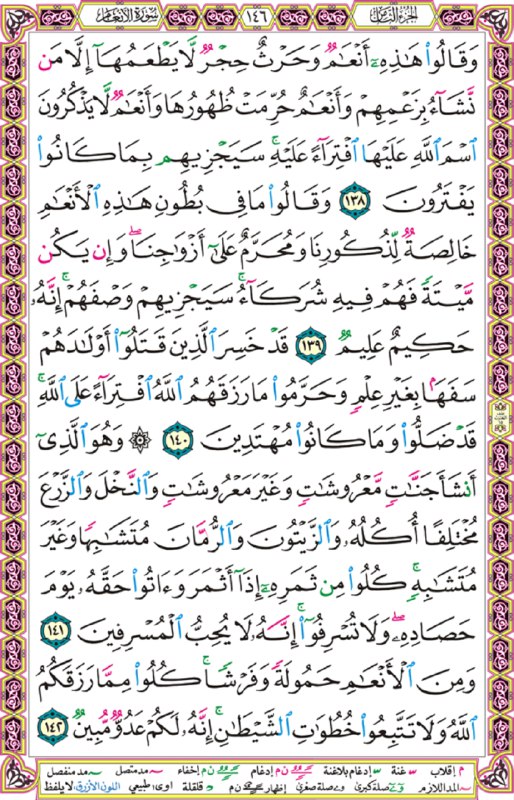 الجزء الثامن ١٤٦ سورة الأنعام
وَقَالُوا۟ هَـٰذِهِۦٓ أَنْعَـٰمٌ وَحَرْثٌ حِجْرٌ لَّا يَطْعَمُهَآ إِلَّا مَن
نَّشَآءُ بِزَعْمِهِمْ وَأَنْعَـٰمٌ حُرِّمَتْ ظُهُورُهَا وَأَنْعَـٰمٌ لَّا يَذْكُرُونَ
ٱسْمَ ٱللَّهِ عَلَيْهَا ٱفْتِرَآءً عَلَيْهِ ۚ سَيَجْزِيهِم بِمَا كَانُوا۟
يَفْتَرُونَ ١٣٨ وَقَالُوا۟ مَا فِى بُطُونِ هَـٰذِهِ ٱلْأَنْعَـٰمِ
خَالِصَةٌ لِّذُكُورِنَا وَمُحَرَّمٌ عَلَىٰٓ أَزْوَٰجِنَا ۖ وَإِن يَكُن
مَّيْتَةً فَهُمْ فِيهِ شُرَكَآءُ ۚ سَيَجْزِيهِمْ وَصْفَهُمْ ۚ إِنَّهُۥ
حَكِيمٌ عَلِيمٌ ١٣٩ قَدْ خَسِرَ ٱلَّذِينَ قَتَلُوٓا۟ أَوْلَـٰدَهُمْ
سَفَهًۢا بِغَيْرِ عِلْمٍ وَحَرَّمُوا۟ مَا رَزَقَهُمُ ٱللَّهُ ٱفْتِرَآءً عَلَى ٱللَّهِ ۚ
قَدْ ضَلُّوا۟ وَمَا كَانُوا۟ مُهْتَدِينَ ١٤٠ ۞ وَهُوَ ٱلَّذِىٓ
أَنشَأَ جَنَّـٰتٍ مَّعْرُوشَـٰتٍ وَغَيْرَ مَعْرُوشَـٰتٍ وَٱلنَّخْلَ وَٱلزَّرْعَ
مُخْتَلِفًا أُكُلُهُۥ وَٱلزَّيْتُونَ وَٱلرُّمَّانَ مُتَشَـٰبِهًا وَغَيْرَ
مُتَشَـٰبِهٍ ۚ كُلُوا۟ مِن ثَمَرِهِۦٓ إِذَآ أَثْمَرَ وَءَاتُوا۟ حَقَّهُۥ يَوْمَ
حَصَادِهِۦ ۖ وَلَا تُسْرِفُوٓا۟ ۚ إِنَّهُۥ لَا يُحِبُّ ٱلْمُسْرِفِينَ ١٤١
وَمِنَ ٱلْأَنْعَـٰمِ حَمُولَةً وَفَرْشًا ۚ كُلُوا۟ مِمَّا رَزَقَكُمُ
ٱللَّهُ وَلَا تَتَّبِعُوا۟ خُطُوَٰتِ ٱلشَّيْطَـٰنِ ۚ إِنَّهُۥ لَكُمْ عَدُوٌّ مُّبِينٌ ١٤٢
م إقلاب غنة إدغام بلاغنة ن م إدغام ن م إخفاء مد متصل مد منفصل
المد اللازم صلة كبرى صلة صغرى إظهار ن م قلقلة اوى: طبيعي اللون الأزرق: لا يلفظ